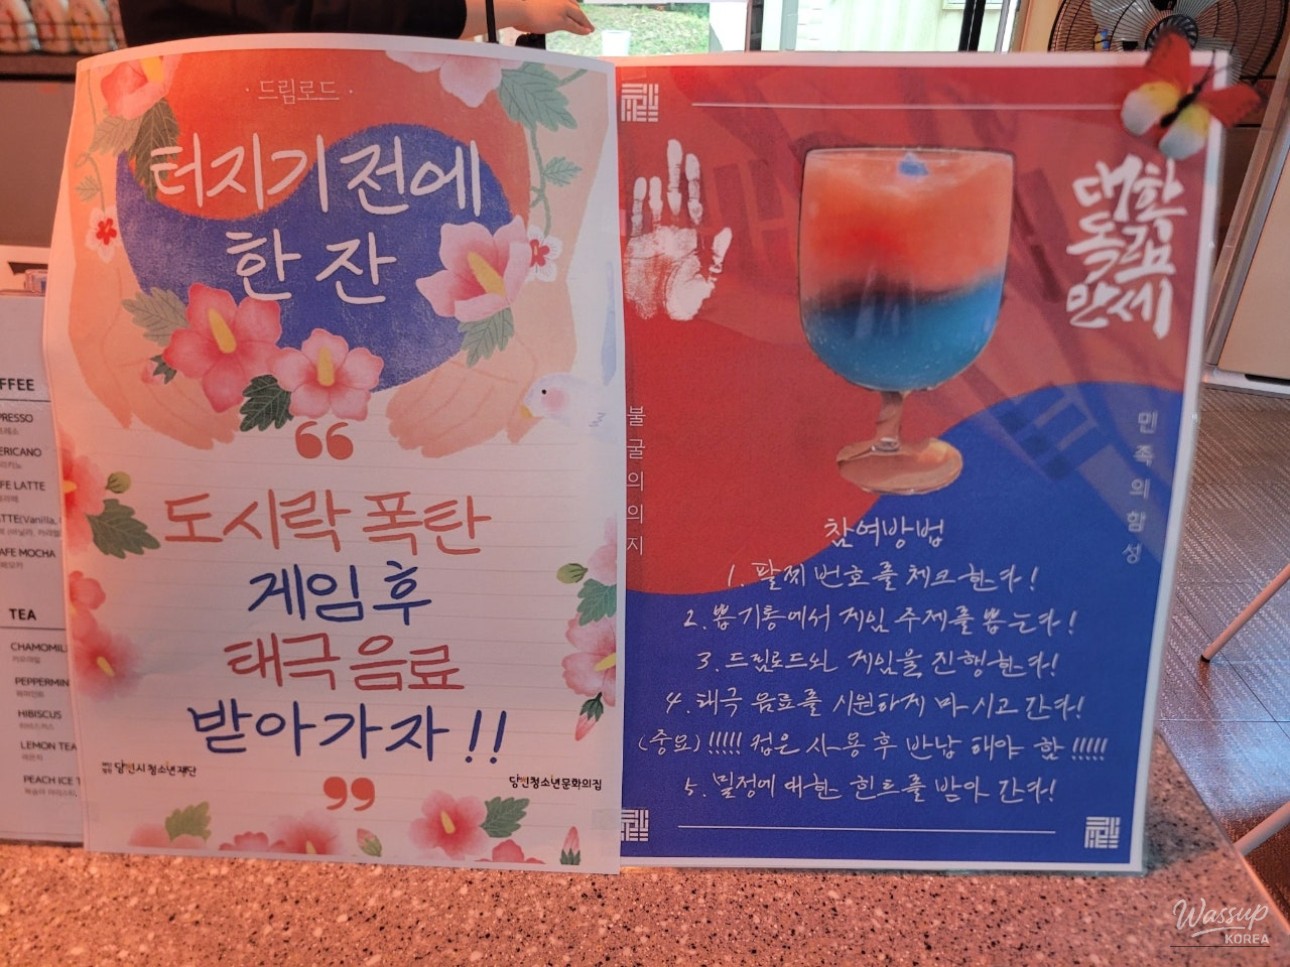 · 드림로드 ·
터지기 전에
한 잔
도시락 폭탄
게임 후
태극음료
받아가자!!
당진시청소년재단
당진청소년문화의집
대한
독립
만세
불굴의의지
민족의함성
참여방법
1. 팔찌 번호를 체크한다!
2. 뽑기통에서 게임 주제를 뽑는다!
3. 드림로드와 게임을 진행한다!
4. 태극 음료를 시원하게 마시고 간다!
(중요)!!!!! 컵은 사용 후 반납 해야 함!!!!!
5. 밀정에 대한 힌트를 받아 간다!
FFEE
RESSO
ERICANO
FE LATTE
TTE(Vanilla,
AFE MOCHA
TEA
CHAMOMIL
PEPPERMIN
HIBISCUS
LEMON TEA
PEACH ICE T
Wassup
KOREA